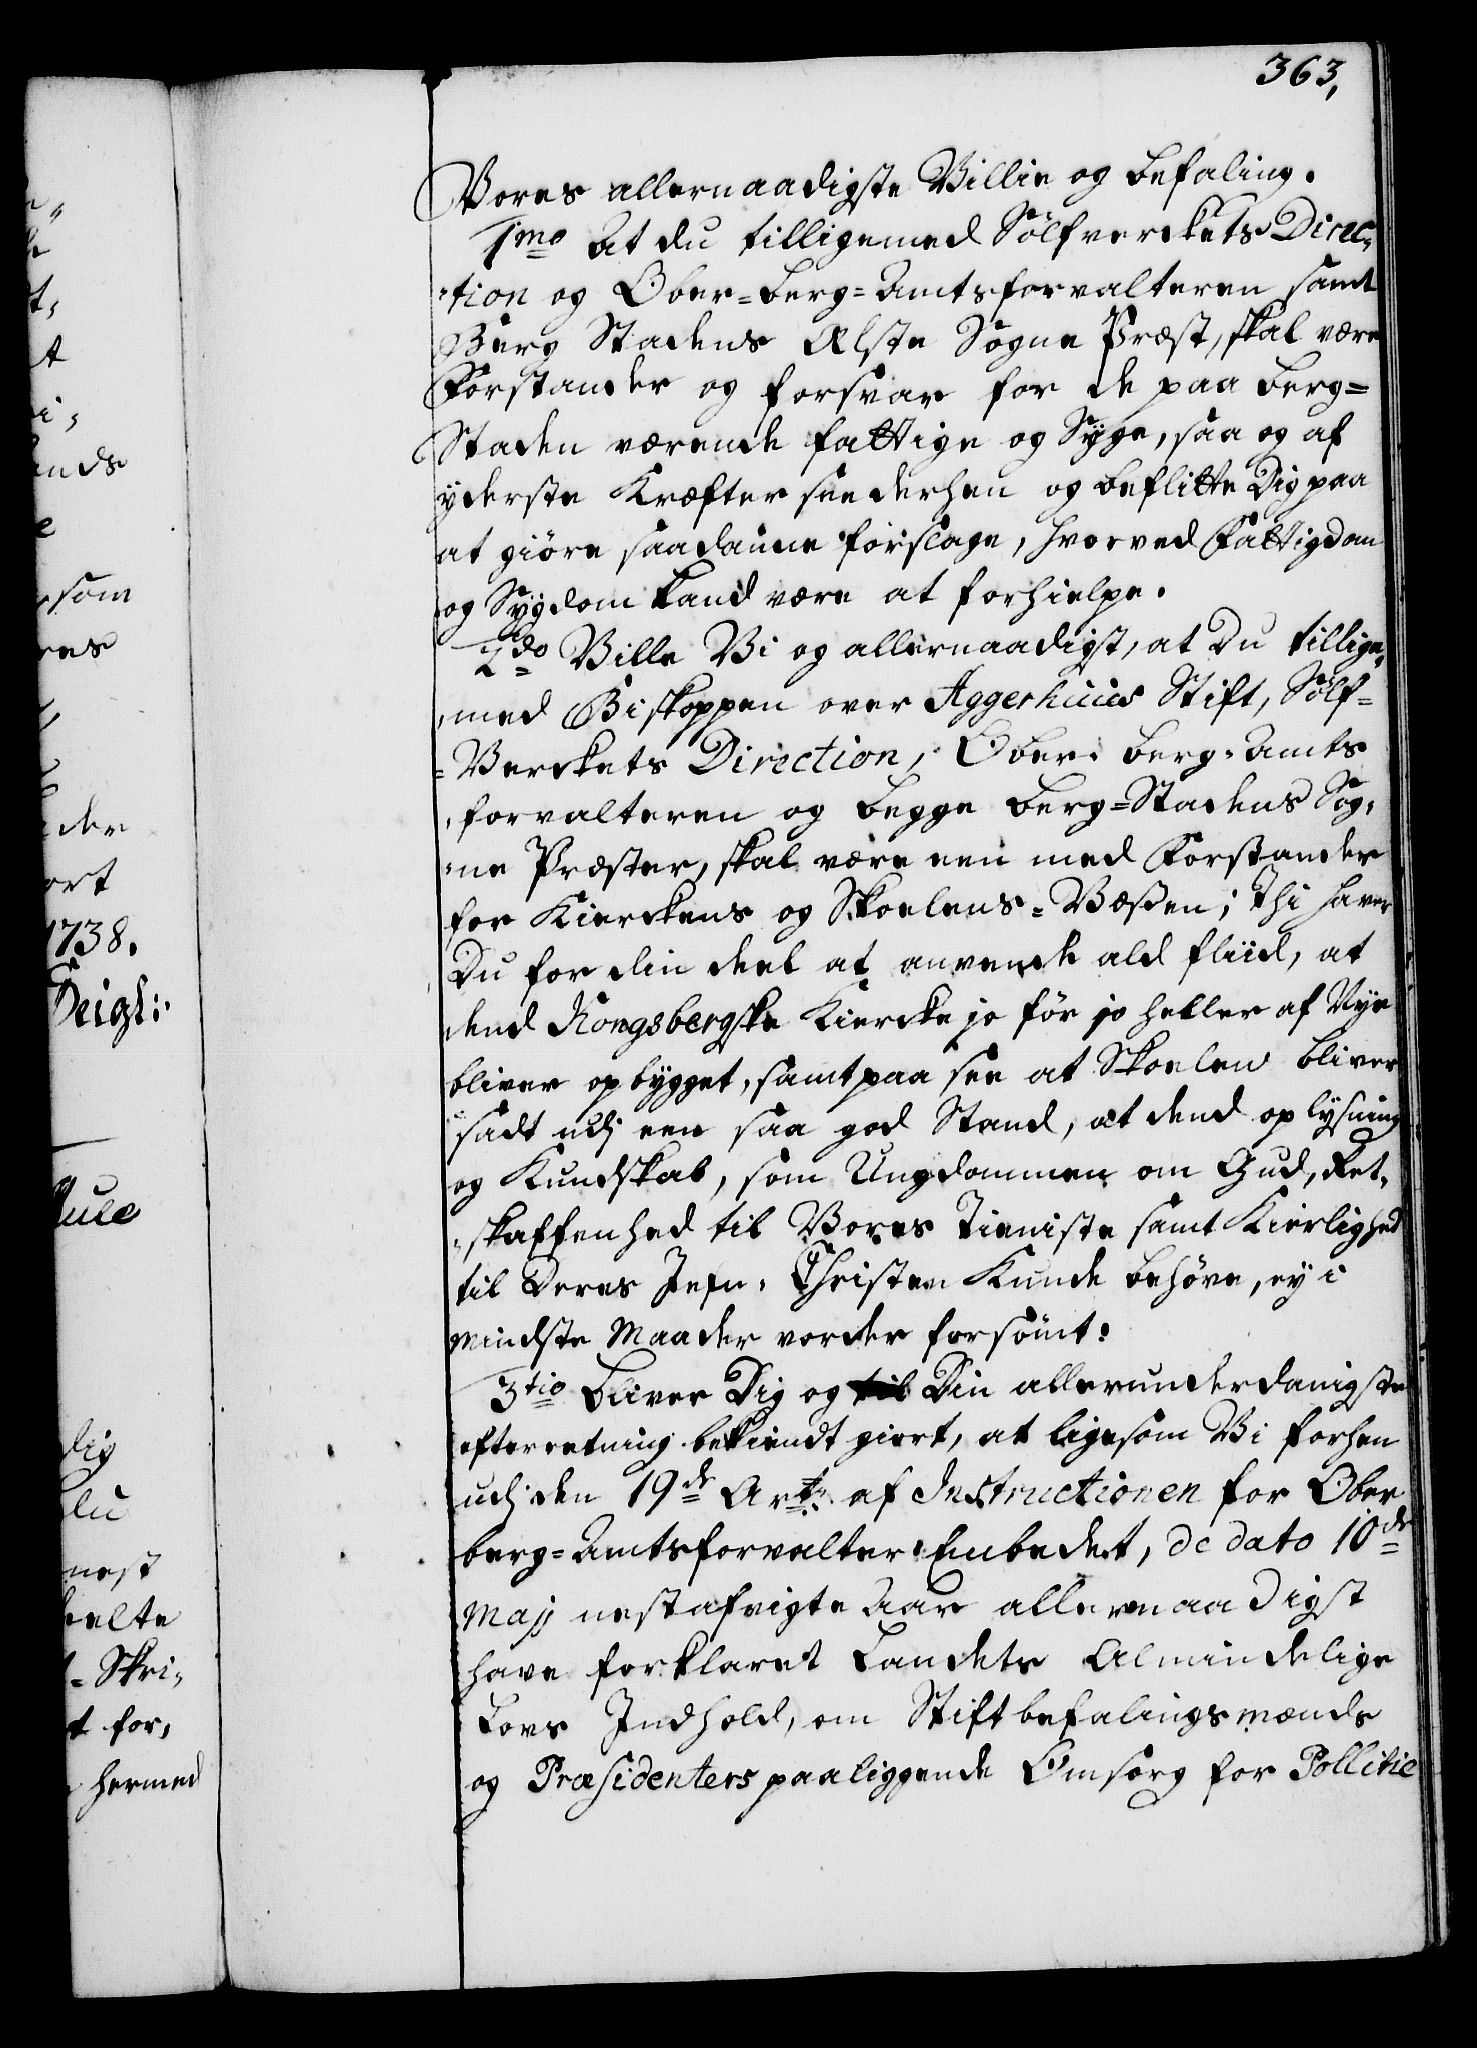 363,
Vores allernaadigste Villie og befaling.
1mo At du tilligemed Sølfverckets Direc,
,tion og Ober-Berg-Amtsforvalteren samt
Berg Stadens Ælste Sogne Præst, skal være
Forstander og forsvar for de paa Berg-
Staden værende fattige og Syge, saa og af
yderste Kræfter see derhen og beflitte Dig paa
at giøre saadanne forslage, hvorved Fattigdom
og Sygdom kand være at forhielpe.
2do Ville Vi og allernaadigst, at Du tillige,
,med Biskoppen over Aggerhuus Stift, Sølf-
-Verckets Direction, Ober-Berg-Amts
,forvalteren og begge Berg-Stadens Sog,
,ne Præster, skal være een med Forstander
for Kierckens og Skoelens-Væßen; Thi haver
Du for din deel at anvende ald fliid, at
dend Kongsbergske Kiercke jo før jo heller af Nye
bliver opbygget, samt paa see at Skoelen bliver
sadt udj een saa god Stand, at dend oplysning
og Kundskab, som Ungdommen om Gud, Ret,
,skaffenhed til Vores Tieniste samt Kierlighed
til Deres Jefn-Christen Kunde behøve, ey i
mindste Maader vorder forsømt.
3tio Bliver Dig og til Din allerunderdanigste
efterretning bekiendt giort, at ligesom Vi forhen
udj den 19de Art: af Instructionen for Ober
berg-Amtsforvalter-Embedet, de dato 10de
Maij nestafvigte Aar allernaadigst
have forklaret Landets Almindelige
Lovs Indhold, om Stiftbefalingsmænds
og Præsidenters paaliggende Omsorg for Pollitie
som
1738.
dig
nest
- Skri,
for,
hermed